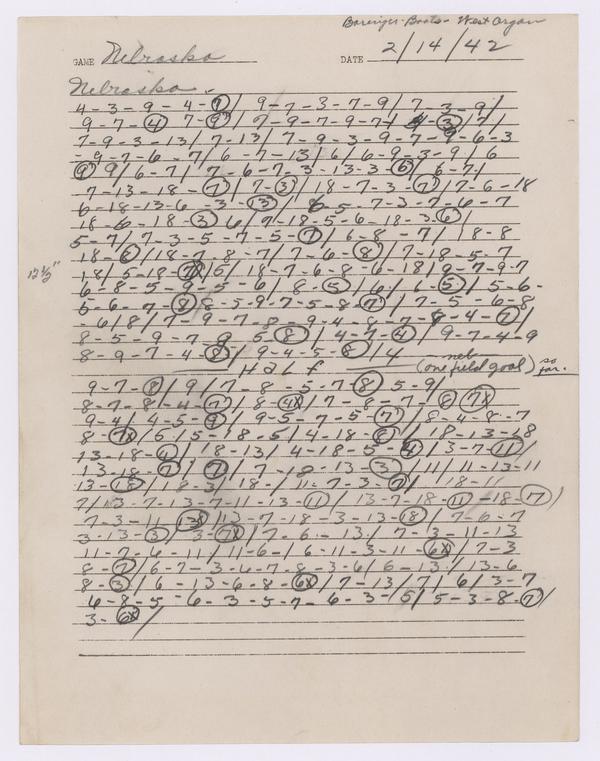 Borenger-Boots- West Organ
GAME Nebraska DATE 2/14/42
Nebraska -
4-3-9-4-7/ 9-7-3-7-9/ 7-3-9/
9-7-4 7-9/ 7-9-7-9-7/ 3/7/
7-9-3-13/ 7-13/ 7-9-3-9-7-9-6-3
-9-7-6-7/ 6-7-13/6/ 6-9-3-9/6
9 9/ 6-7/ 7-6-7-3-13-3 6/ 6-7/
7-13-18-7/ 7-3/ 18-7-3-7/ 7-6-18
6-18-13-6-3-13/ 6-5-7-3-7-6-7
18-6-18-3/ 6/ 7-18-5-6-18-3 6/
5-7/ 7-3-5-7-5-7/ 6-8-7/ 18-8
-18-6/ 18-7-8-7/ 7-6-8/ 7-18-5-7
12½" 18/ 5-18-7/ 5/ 18-7-6-8-6-18/ 9-7-9-7
6-8-5-9-5-6/ 8-5/ 6/ 6-5/ 5-6-
5-6-7-8/ 8-5-9-7-5-8-7/ 7-5-6-8
-6/8/ 7-9-7-8-9-4-6-7-4-7/
8-5-9-7-9 5-8/ 4-7-4/ 9-7-4-9
8-9-7-4-8/ 9-4-5-8/ 4
Half (one field goal) neb so far.
9-7-8/ 9/ 7-8-5-7 8/ 5-9/
8-7-8-4-7/ 8-4x/ 7-8-7-6 7x
9-4/ 4-5-9/ 9-5-7-5-7/ 8-4-8-7
8-7x/ 6/ 5-18-5/ 4-18-6/ 18-13-18
13-18-4/ 18-13/ 4-18-5-4/ 3-7-11/
13-18-7/ 7/ 7-18-13-3/ 11/ 11-13-11
13-18/ 18-3/ 18-/ 11-7-3-7/ 18-11
7/ 13-7-13-7-11-13-11/ 13-7-18-11-18-17/
7-3-11 13x/ 13-7-18-3-13-18/ 7-6-7
3-13-3/ 3-7x/ 7-6-13/ 7-3-11-13
11-7-6-11/ 11-6-/ 6-11-3-11-6x/ 7-3
8-7/ 6-7-3-6-7-8-3-6/ 6-13/ 13-6
8-3/ 6-13-6-8-6x/ 7-13/7/ 6/ 3-7
6-8-5 6-3-5-7-6-3-/5/ 5-3-8-7/
3-6x/